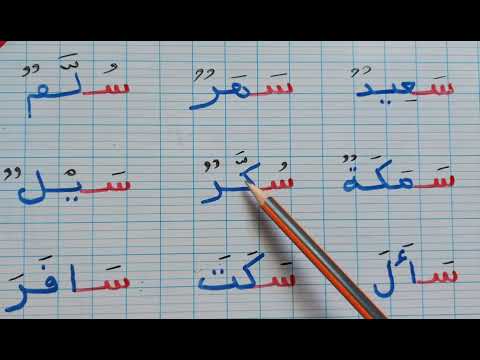 سَعِيدٌ سَهَرٌ سُلَّمٌ
سَمَكَةٌ سُكَّرٌ سَيْلٌ
سَأَلَ سَكَتَ سَافَرَ